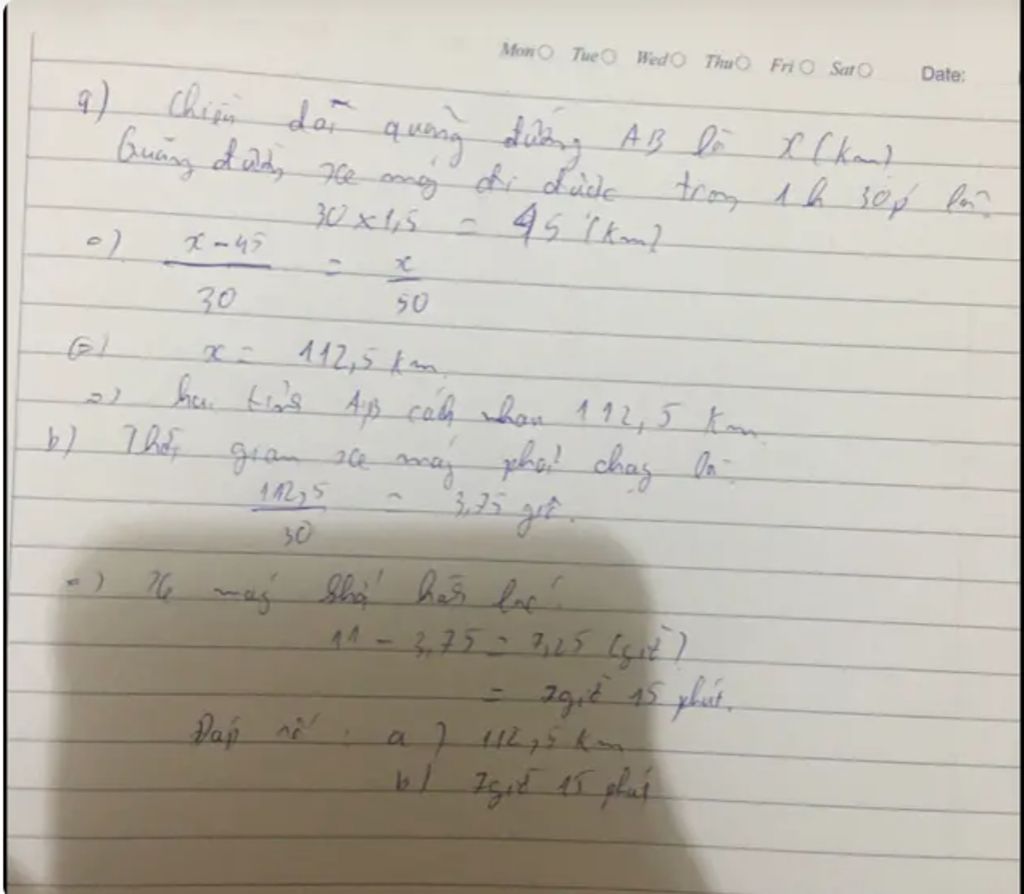 Mon Tue Wed Thu Fri Sat Date:
a) Chiều dài quãng đường AB là x (km)
Quãng đường xe máy đi được trong 1h 30p là:
30 x 1,5 = 45 (km)
=) x - 45 / 30 = x / 50
(=) x = 112,5 km
=) hai tỉnh A,B cách nhau 112,5 km
b) Thời gian xe máy phải chạy là:
112,5 / 30 = 3,75 giờ.
=) Xe máy khởi hành lúc:
11 - 3,75 = 7,25 (giờ)
= 7 giờ 15 phút.
Đáp số: a) 112,5 km
b) 7 giờ 15 phút